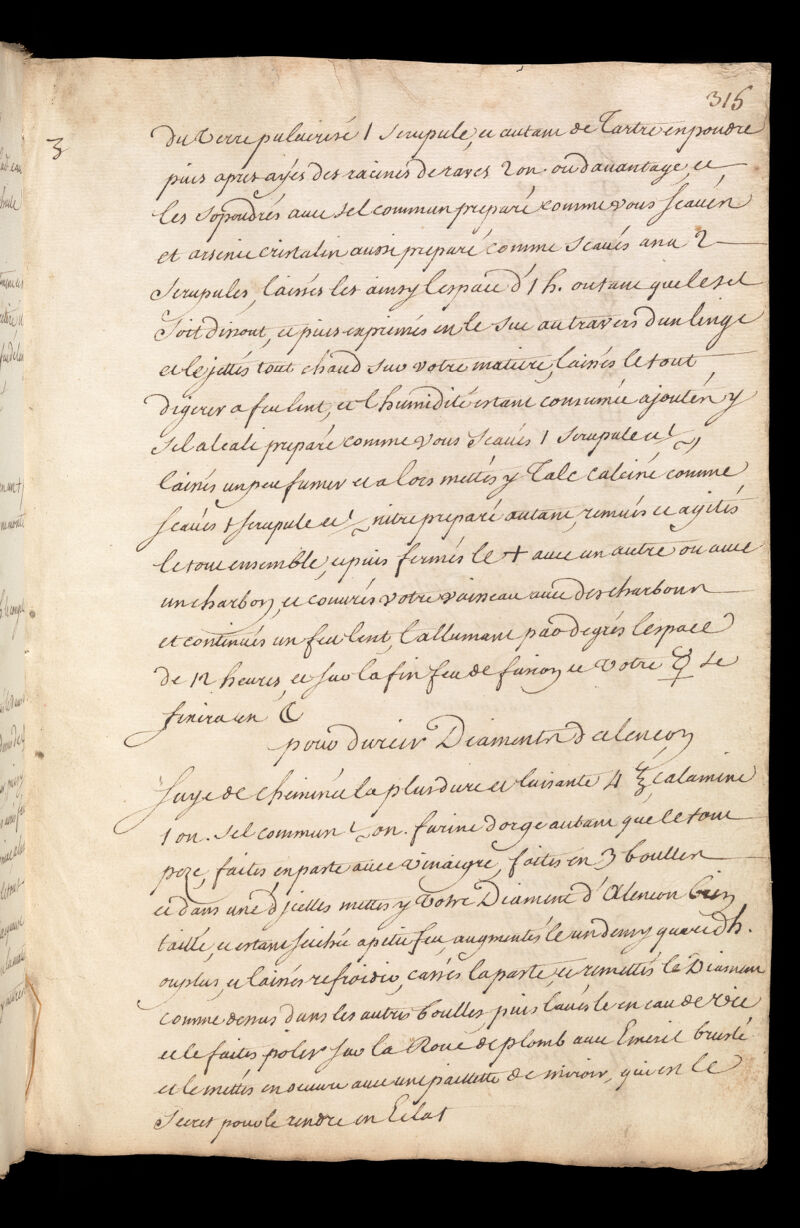 315
3
du verre pulverisé 1 scrupule, et autant de Tartre enpoudre
puis apres ayés des racines de raves 2 on. ou davantage, et
les sopoudrés avec sel commun preparé comme vous scavén
et arsenic cristalin aussi preparé comme scavés ana 2
scrupules, laissés les ainsy l'espace d'1 h. ou tant que le sel
soit dissout, et puis exprimés en le suc au travers d'un linge
et le jettés tout chaud sur votre matiere, laissés le tout
digerer a feu lent, et l'humidité estant consumée ajoutén y
sel alcali preparé comme vous scavés 1 scrupule et
laissés un peu fumer et alors mettés y Talc calciné comme
scavés 1 scrupule et nitre preparé autant, remués et agités
le tout ensemble, et puis fermés le + avec un autre ou avec
un charbon, et couvrés votre vaisseau avec des charbons
et continués un feu lent, l'allumant par degrés l'espace
de 12 heures, et sur la fin feu de fusion et votre ☿ se
finira en ☾
pour durcir Diaments d'alencon
suye de cheminée la plus dure et luisante 4 ℥, calamine
1 on. sel commun on. farine d'orge autant que le tout
poze, faites en paste avec vinaigre, faites en 3 boulles
et dans une d'jcelles mettes y votre Diament d'Alencon bien
taillé, et estant seichée a petit feu, augmentés le un demy quart d'h.
ou plus, et laissés refroidir, cassés la paste, et remettés le Diamant
comme dessus dans les autres boulles, puis lavés le en eau de vie
et le faites polir sur la Roue de plomb avec Emeril bruslé
et le mettés en oeuvre avec une paillette de miroir, qui est le
secret pour le rendre en Eclat